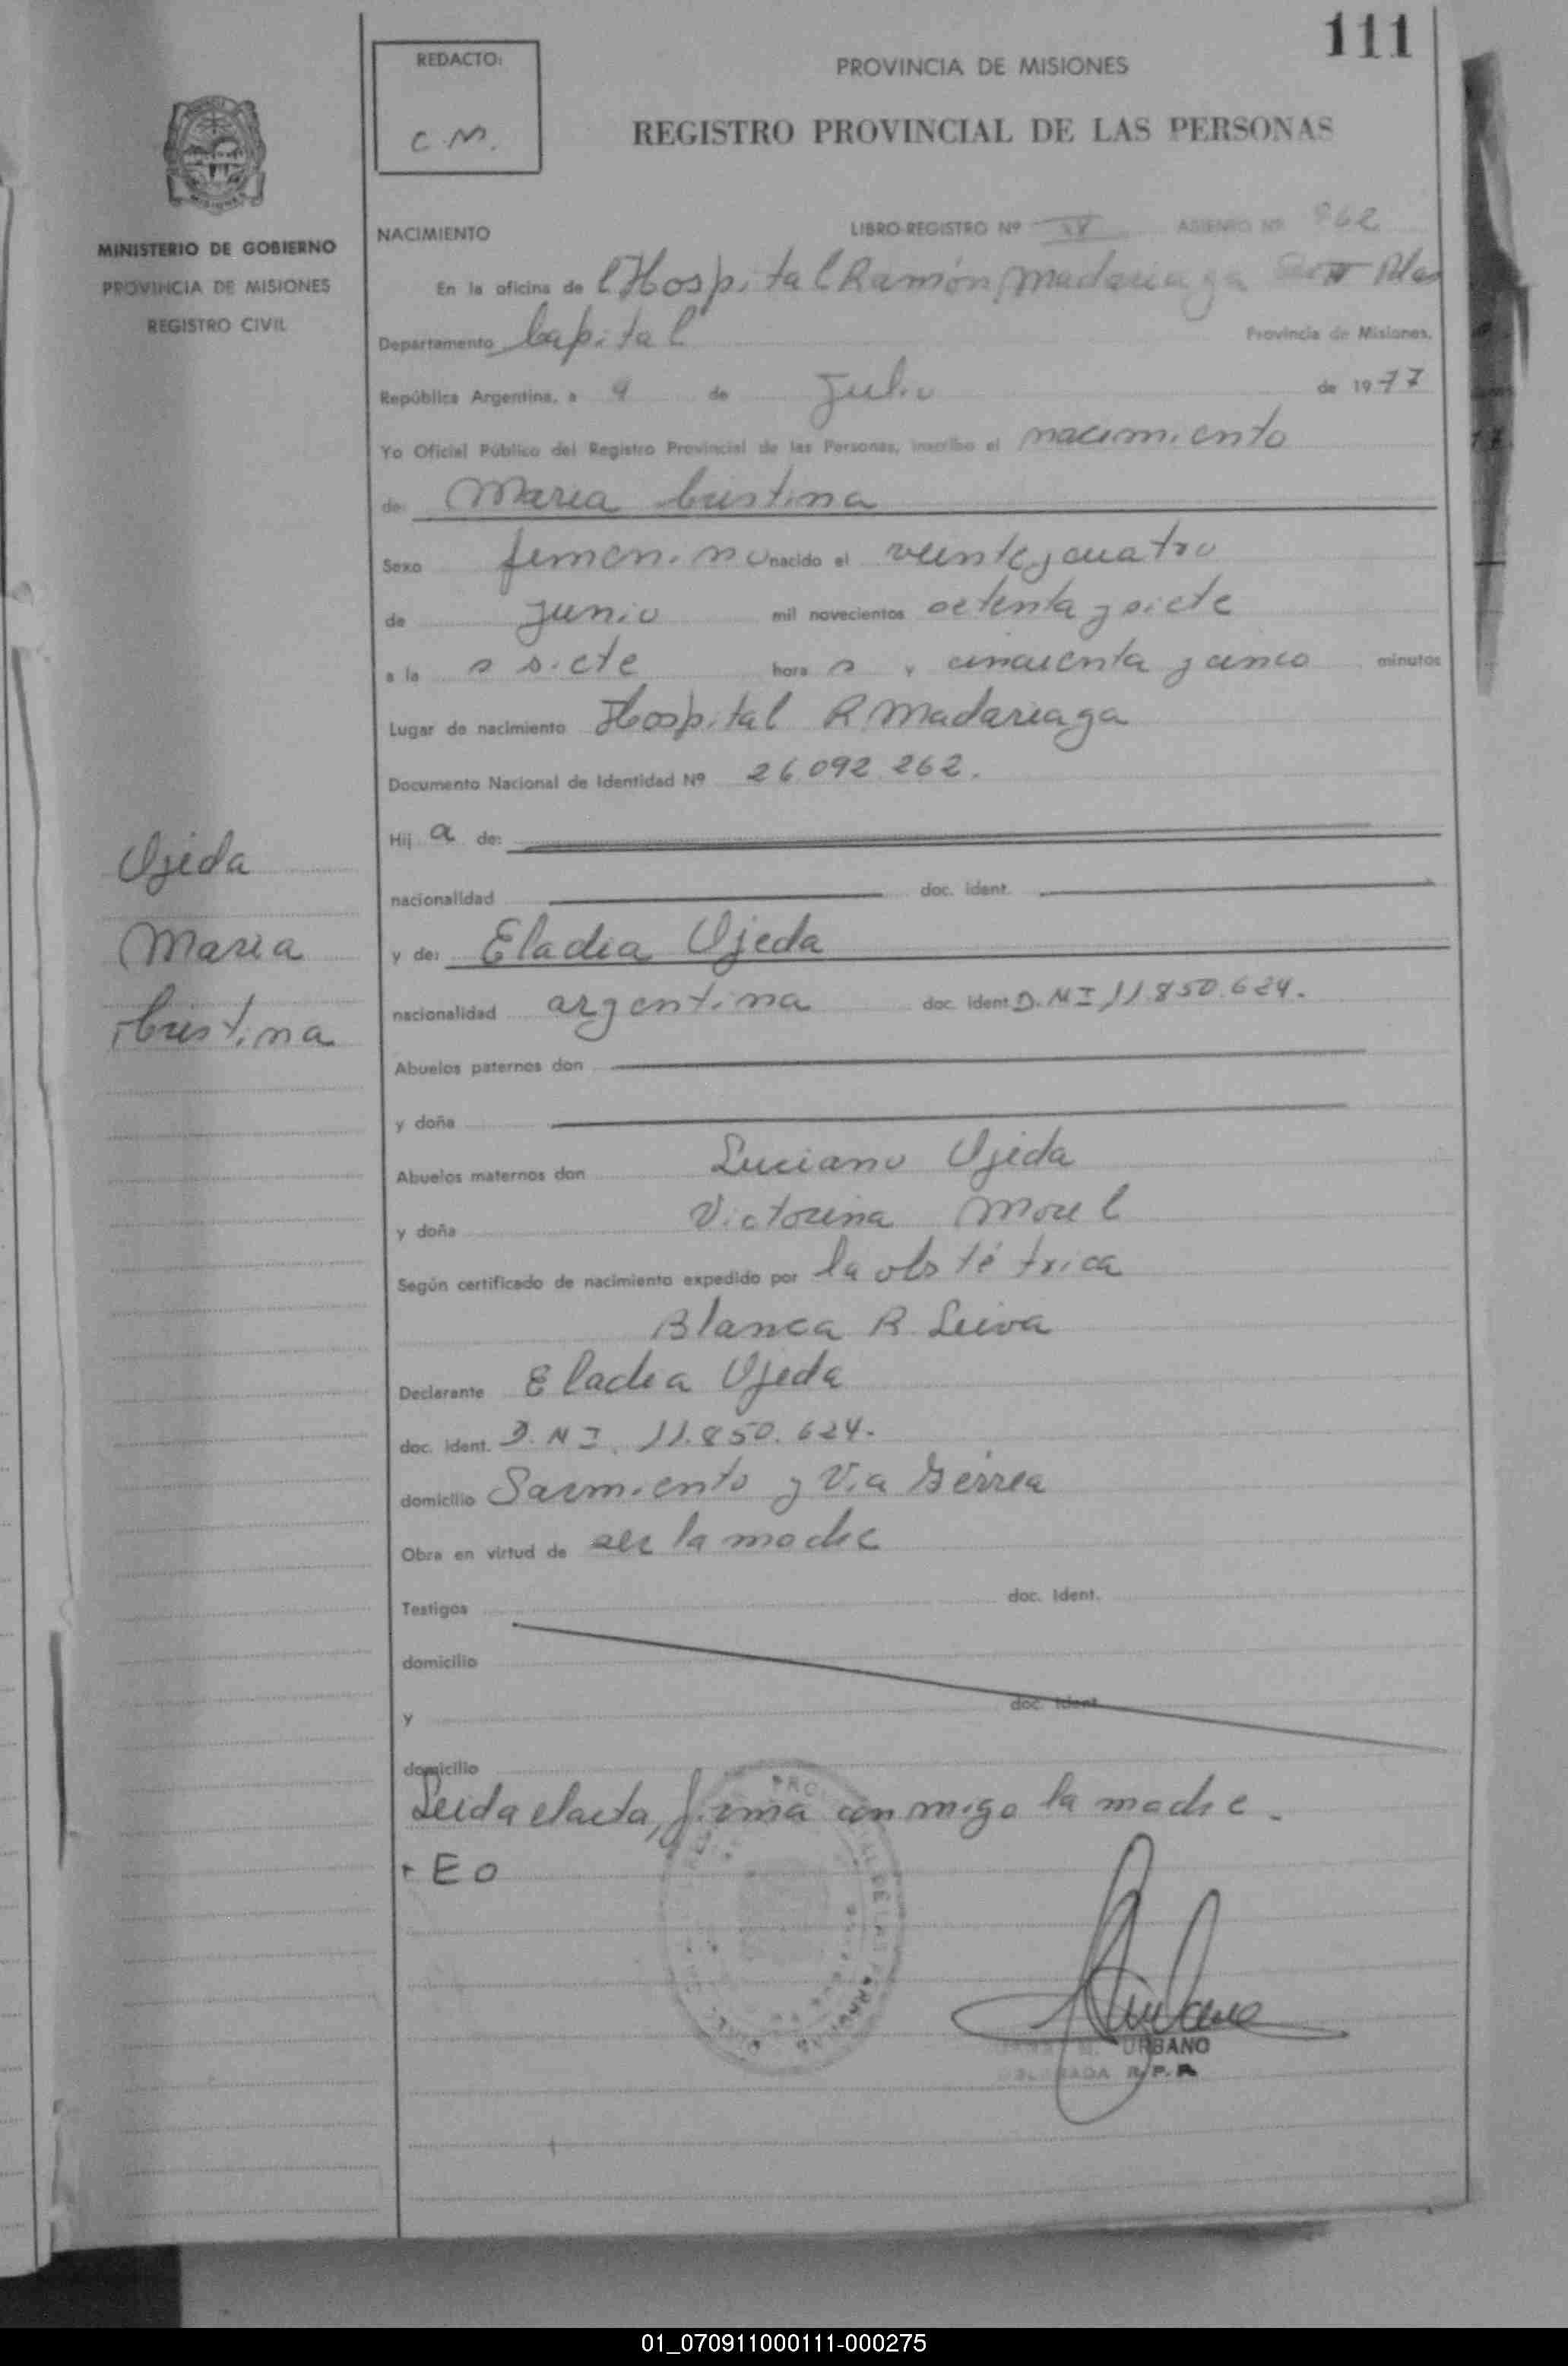 111
REDACTO:
C.M.
PROVINCIA DE MISIONES
REGISTRO PROVINCIAL DE LAS PERSONAS
MINISTERIO DE GOBIERNO
PROVINCIA DE MISIONES
REGISTRO CIVIL
NACIMIENTO LIBRO-REGISTRO Nº ASIENTO Nº 862
En la oficina de l Hospital Ramón Madariaga
Departamento Capital Provincia de Misiones.
República Argentina, a 9 de Julio de 1977
Yo Oficial Público del Registro Provincial de las Personas, inscribo el nacimiento
de: Maria Cristina
Sexo femenino nacido el veinte y cuatro
de Junio mil novecientos setenta y siete
a la s siete hora s y cincuenta y cinco minutos
Lugar de nacimiento Hospital R Madariaga
Documento Nacional de Identidad Nº 26.092.262.
Hij a de:
nacionalidad doc. ident.
y de: Eladia Ojeda
nacionalidad argentina doc. ident. D.N.I 11.850.624.
Abuelos paternos don
y doña
Abuelos maternos don Luciano Ojeda
y doña Victorina Morel
Según certificado de nacimiento expedido por la obstétrica
Blanca R. Leiva
Declarante Eladia Ojeda
doc. ident. D.N.I. 11.850.624.
domicilio Sarmiento y Via Férrea
Obra en virtud de ser la madre
Testigos doc. ident.
domicilio
y doc. ident.
domicilio
Leida el acta, firma conmigo la madre.
+ E O
URBANO
R.P.P.
Ojeda
Maria
Cristina
01_070911000111-000275